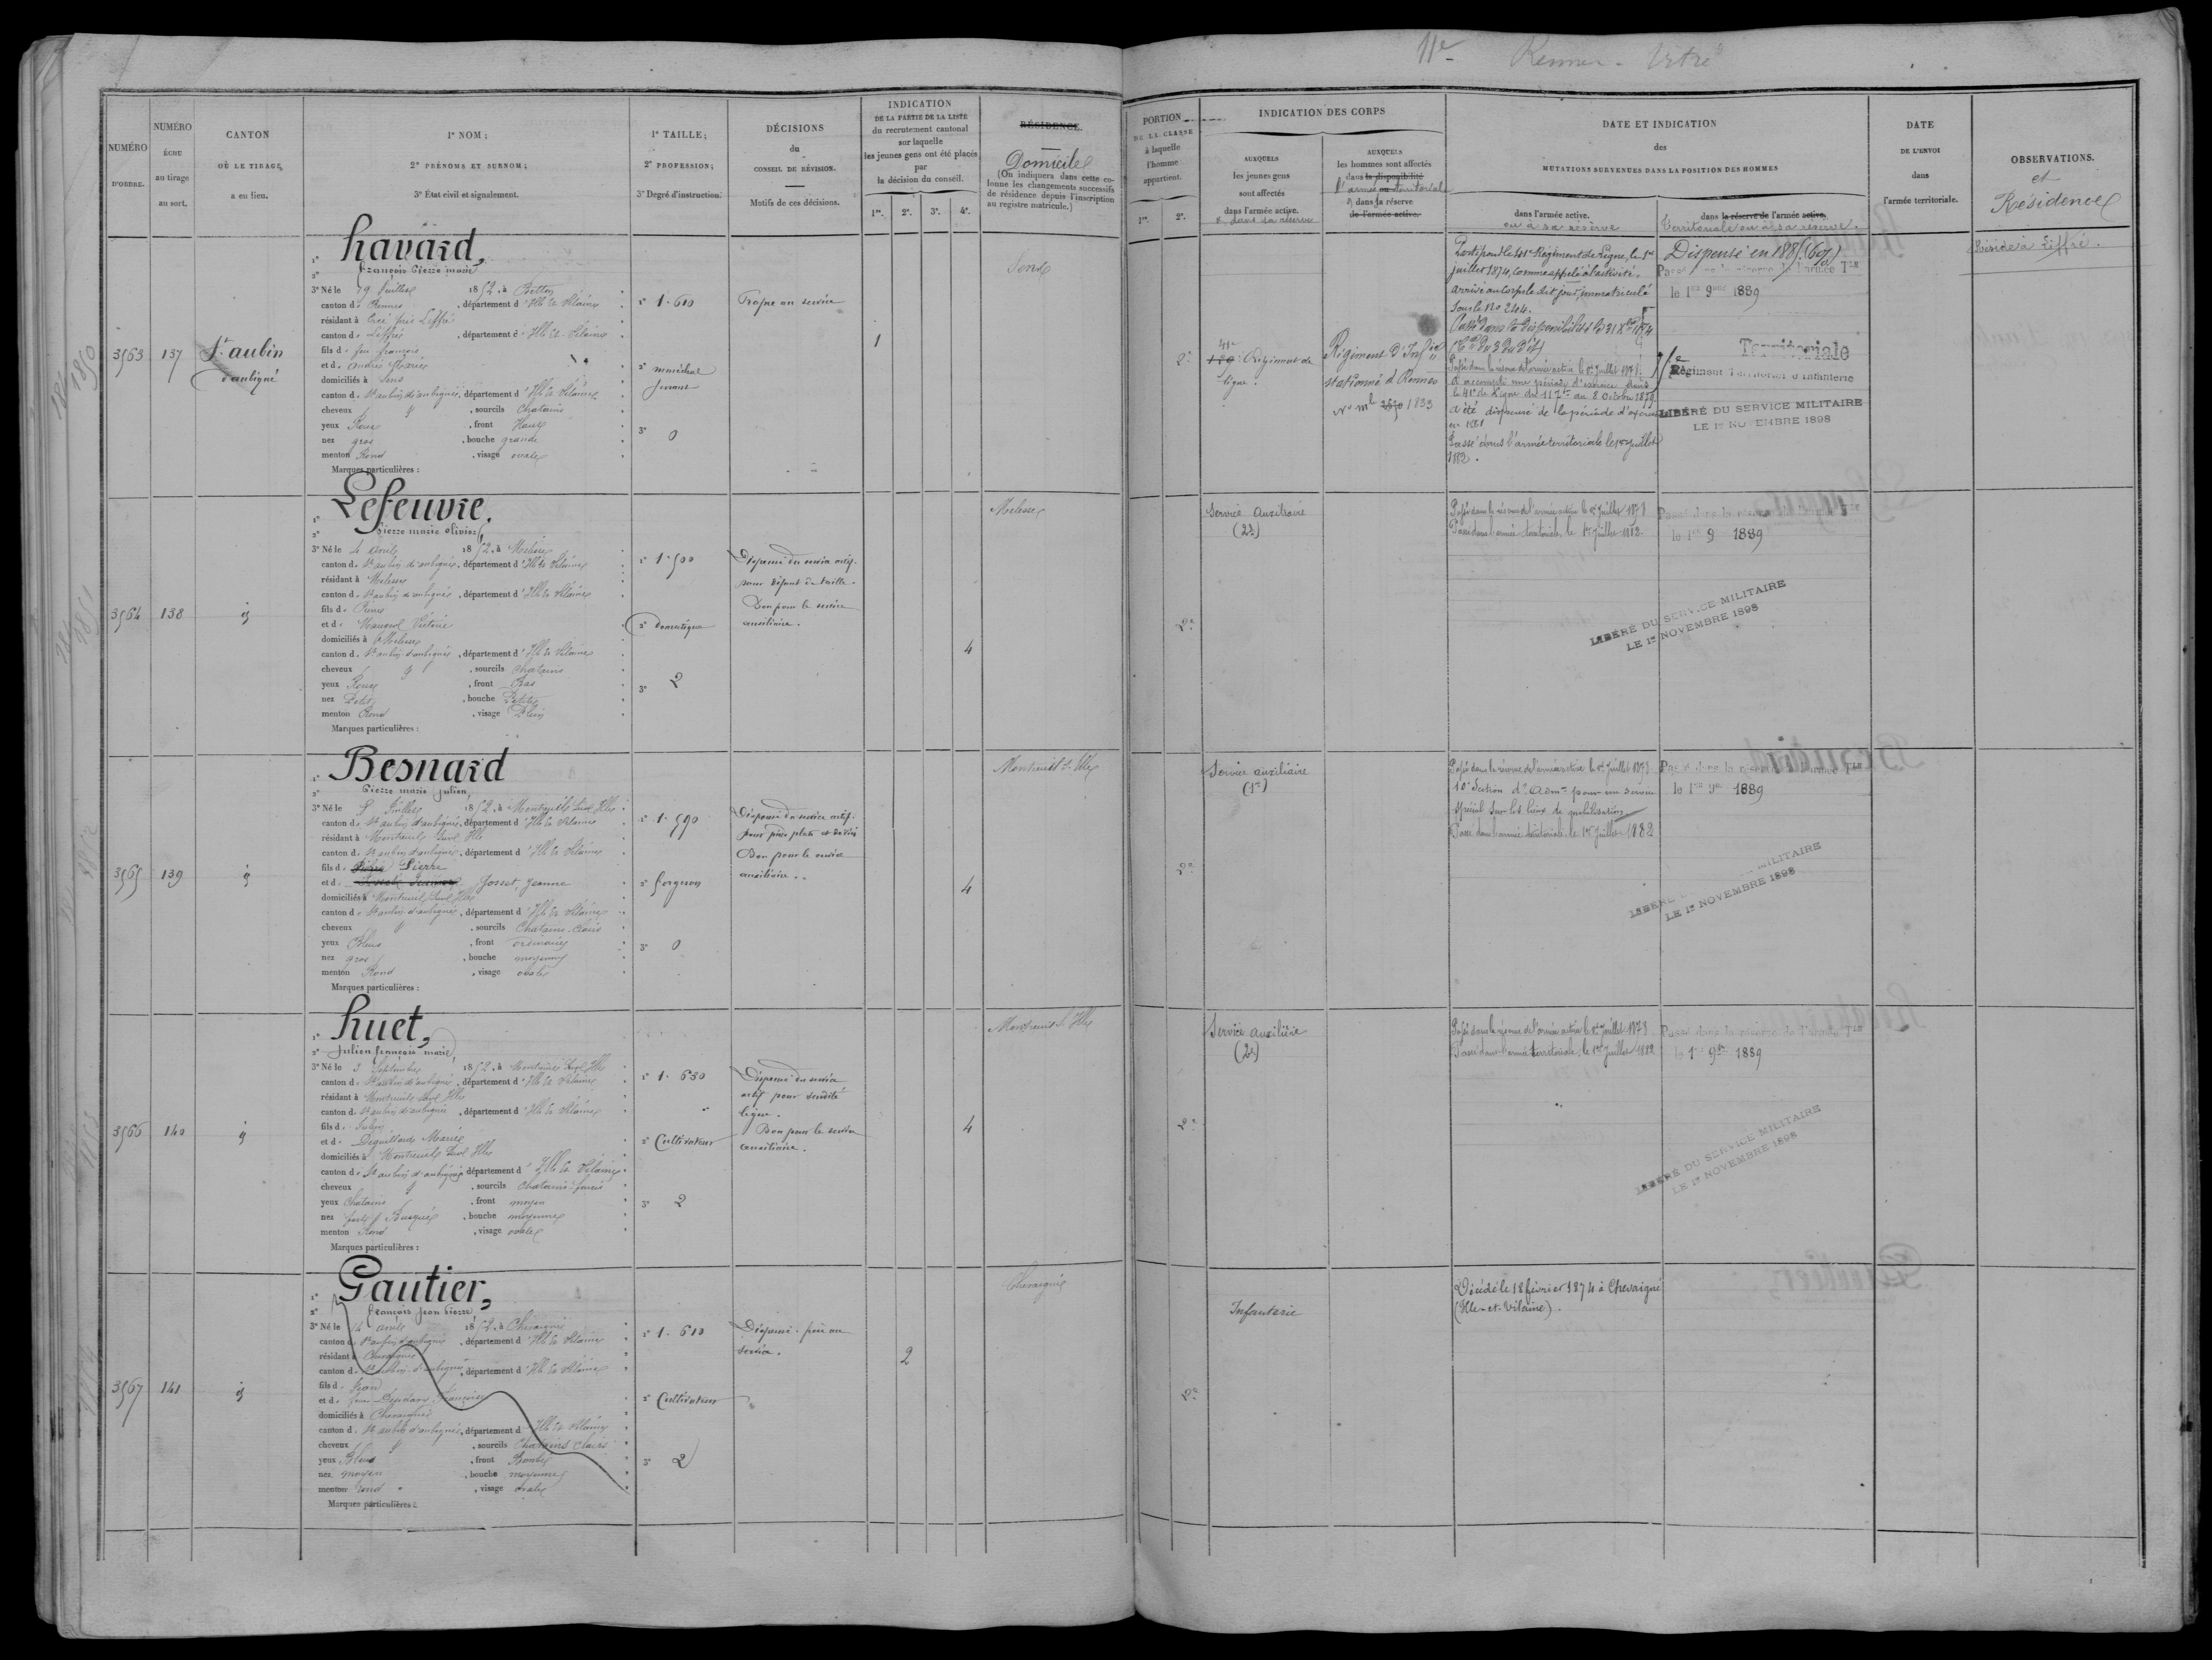 11e Rennes - Vitré
NUMÉRO
D'ORDRE.
NUMÉRO
ÉCHU
au tirage
au sort.
CANTON
OÙ LE TIRAGE
a eu lieu.
1º NOM ;
2º PRÉNOMS ET SURNOM ;
3º État civil et signalement.
1º TAILLE ;
2º PROFESSION ;
3º Degré d'instruction.
DÉCISIONS
du
CONSEIL DE RÉVISION.
Motifs de ces décisions.
INDICATION
DE LA PARTIE DE LA LISTE
du recrutement cantonal
sur laquelle
les jeunes gens ont été placés
par
la décision du conseil.
1re. 2e. 3e. 4e.
RÉSIDENCE.
Domicile
(On indiquera dans cette co-
lonne les changements successifs
de résidence depuis l'inscription
au registre matricule.)
PORTION
DE LA CLASSE
à laquelle
l'homme
appartient.
1re. 2e.
INDICATION DES CORPS
AUXQUELS
les jeunes gens
sont affectés
dans l'armée active.
et dans sa réserve
AUXQUELS
les hommes sont affectés
dans la disponibilité
l'armée ou territoriale
et dans sa réserve
de l'armée active.
DATE ET INDICATION
des
MUTATIONS SURVENUES DANS LA POSITION DES HOMMES
dans l'armée active.
ou à sa réserve
dans la réserve de l'armée active.
territoriale ou à sa réserve.
DATE
DE L'ENVOI
dans
l'armée territoriale.
OBSERVATIONS.
et
Résidence
3563 137 St. aubin
d'aubigné
havard,
françois Pierre marie
3º Né le 29 Juillet 1852, à Betton
canton de Rennes, département d'Ille et Vilaine
résidant à Ercé près Liffré
canton de Liffré, département d'Ille et Vilaine
fils de feu françois
et de andré Marie
domiciliés à Sens
canton de St aubin d'aubigné, département d'Ille et Vilaine
cheveux et, sourcils Chatains
yeux Roux, front Haut
nez gros, bouche grande
menton Rond, visage ovale
Marques particulières :
1º 1.610
2º maréchal
ferrant
3º 0
Propre au service
1
Sens
2e
41e
Régiment de
ligne.
Régiment d'Infie
stationné à Rennes
No mle 1833
Parti pour le 41e Régiment de Ligne, le 1er
juillet 1874, comme appelé à l'activité.
arrivé au Corps le dit jour, immatriculé
sous le No 2404.
Passé dans la disponibilité le 31 Xbre 1874
Passé dans la réserve de l'armée active le 1er Juillet 1878.
a accompli une période d'exercice dans
le 41e de Ligne du 11 7bre au 8 Octobre 1879.
a été dispensé de la période d'exercice
en 1881
Passé dans l'armée territoriale le 1er juillet
1882.
Dispensé en 1885 (69)
Passé dans la réserve de l'armée Tle
le 1er 9bre 1889
Territoriale
Régiment Territorial d'Infanterie
LIBÉRÉ DU SERVICE MILITAIRE
LE 1er NOVEMBRE 1898
Réside à Liffré.
3564 138 id
Lefeuvre,
Pierre marie olivier
3º Né le 4 avril 1852, à Melesse
canton de St aubin d'aubigné, département d'Ille et Vilaine
résidant à Melesse
canton de St aubin d'aubigné, département d'Ille et Vilaine
fils de Pierre
et de Victoire
domiciliés à Melesse
canton de St aubin d'aubigné, département d'Ille et Vilaine
cheveux et, sourcils chatains
yeux Roux, front Bas
nez Petit, bouche Petite
menton Rond, visage Plein
Marques particulières :
1º 1.500
2º domestique
3º 2
Dispensé du service actif
pour défaut de taille.
Bon pour le service
auxiliaire.
4
Melesse
2e
Service auxiliaire
(2e)
Passé dans la réserve de l'armée active le 1er Juillet 1878
Passé dans l'armée territoriale, le 1er Juillet 1882
Passé dans la réserve de l'armée Tle
le 1er 9 1889
LIBÉRÉ DU SERVICE MILITAIRE
LE 1er NOVEMBRE 1898
3565 139 id
Besnard
Pierre marie julien,
3º Né le 8 Juillet 1852, à Montreuil sur Ille
canton de St aubin d'aubigné, département d'Ille et Vilaine
résidant à Montreuil sur Ille
canton de St aubin d'aubigné, département d'Ille et Vilaine
fils de Pierre
et de Josset, Jeanne
domiciliés à Montreuil sur Ille
canton de St aubin d'aubigné, département d'Ille et Vilaine
cheveux et, sourcils Chatains clairs
yeux Bleus, front ordinaire
nez gros, bouche moyenne
menton Rond, visage ovale
Marques particulières :
1º 1.590
2º forgeron
3º 0
Dispensé du service actif
pour pieds plats et déviés
Bon pour le service
auxiliaire.
4
Montreuil s. Ille
2e
Service auxiliaire
(1re)
Passé dans la réserve de l'armée active le 1er Juillet 1878
10e Section d'Admon pour un service
spécial sur les lieux de mobilisation
Passé dans l'armée territoriale, le 1er Juillet 1882
Passé dans la réserve de l'armée Tle
le 1er 9bre 1889
MILITAIRE
LE 1er NOVEMBRE 1898
3566 140 id
huet,
Julien françois marie,
3º Né le 3 Septembre 1852, à Montreuil sur Ille
canton de St aubin d'aubigné, département d'Ille et Vilaine
résidant à Montreuil sur Ille
canton de St aubin d'aubigné, département d'Ille et Vilaine
fils de Julien
et de Deguillard Marie
domiciliés à Montreuil sur Ille
canton de St aubin d'aubigné, département d'Ille et Vilaine
cheveux et, sourcils Chatains foncés
yeux Chatains, front moyen
nez fort et Busqué, bouche moyenne
menton Rond, visage ovale
Marques particulières :
1º 1.630
2º Cultivateur
3º 2
Dispensé du service
actif pour surdité
légère.
Bon pour le service
auxiliaire.
4
Montreuil s. Ille
2e
Service auxiliaire
(2e)
Passé dans la réserve de l'armée active le 1er Juillet 1878
Passé dans l'armée territoriale, le 1er Juillet 1882
Passé dans la réserve de l'armée Tle
le 1er 9bre 1889
LIBÉRÉ DU SERVICE MILITAIRE
LE 1er NOVEMBRE 1898
3567 141 id
Gautier,
françois jean Pierre
3º Né le 14 avril 1852, à Chevaigné
canton de St aubin d'aubigné, département d'Ille et Vilaine
résidant à Chevaigné
canton de St aubin d'aubigné, département d'Ille et Vilaine
fils de Jean
et de feue Françoise
domiciliés à Chevaigné
canton de St aubin d'aubigné, département d'Ille et Vilaine
cheveux et, sourcils Chatains clairs
yeux Bleus, front Bombé
nez moyen, bouche moyenne
menton rond, visage ovale
Marques particulières :
1º 1.610
2º Cultivateur
3º 2
Dispensé : frère au
service.
2
Chevaigné
2e
Infanterie
Décédé le 18 février 1874 à Chevaigné
(Ille-et-Vilaine).